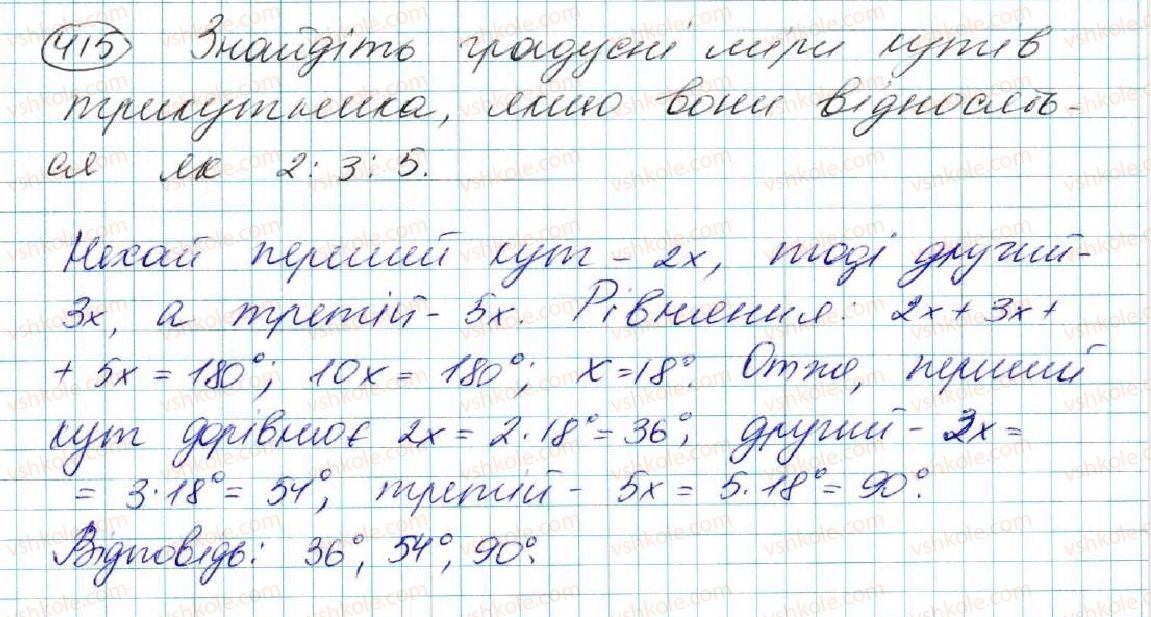 415 Знайдіть градусні міри кутів
трикутника, якщо вони відносять-
ся як 2:3:5.
Нехай перший кут - 2x, тоді другий -
3x, а третій - 5x. Рівняння: 2x + 3x +
+ 5x = 180°; 10x = 180°; x = 18°. Отже, перший
кут дорівнює 2x = 2·18° = 36°, другий - 3x =
= 3·18° = 54°, третій - 5x = 5·18° = 90°.
Відповідь: 36°, 54°, 90°.